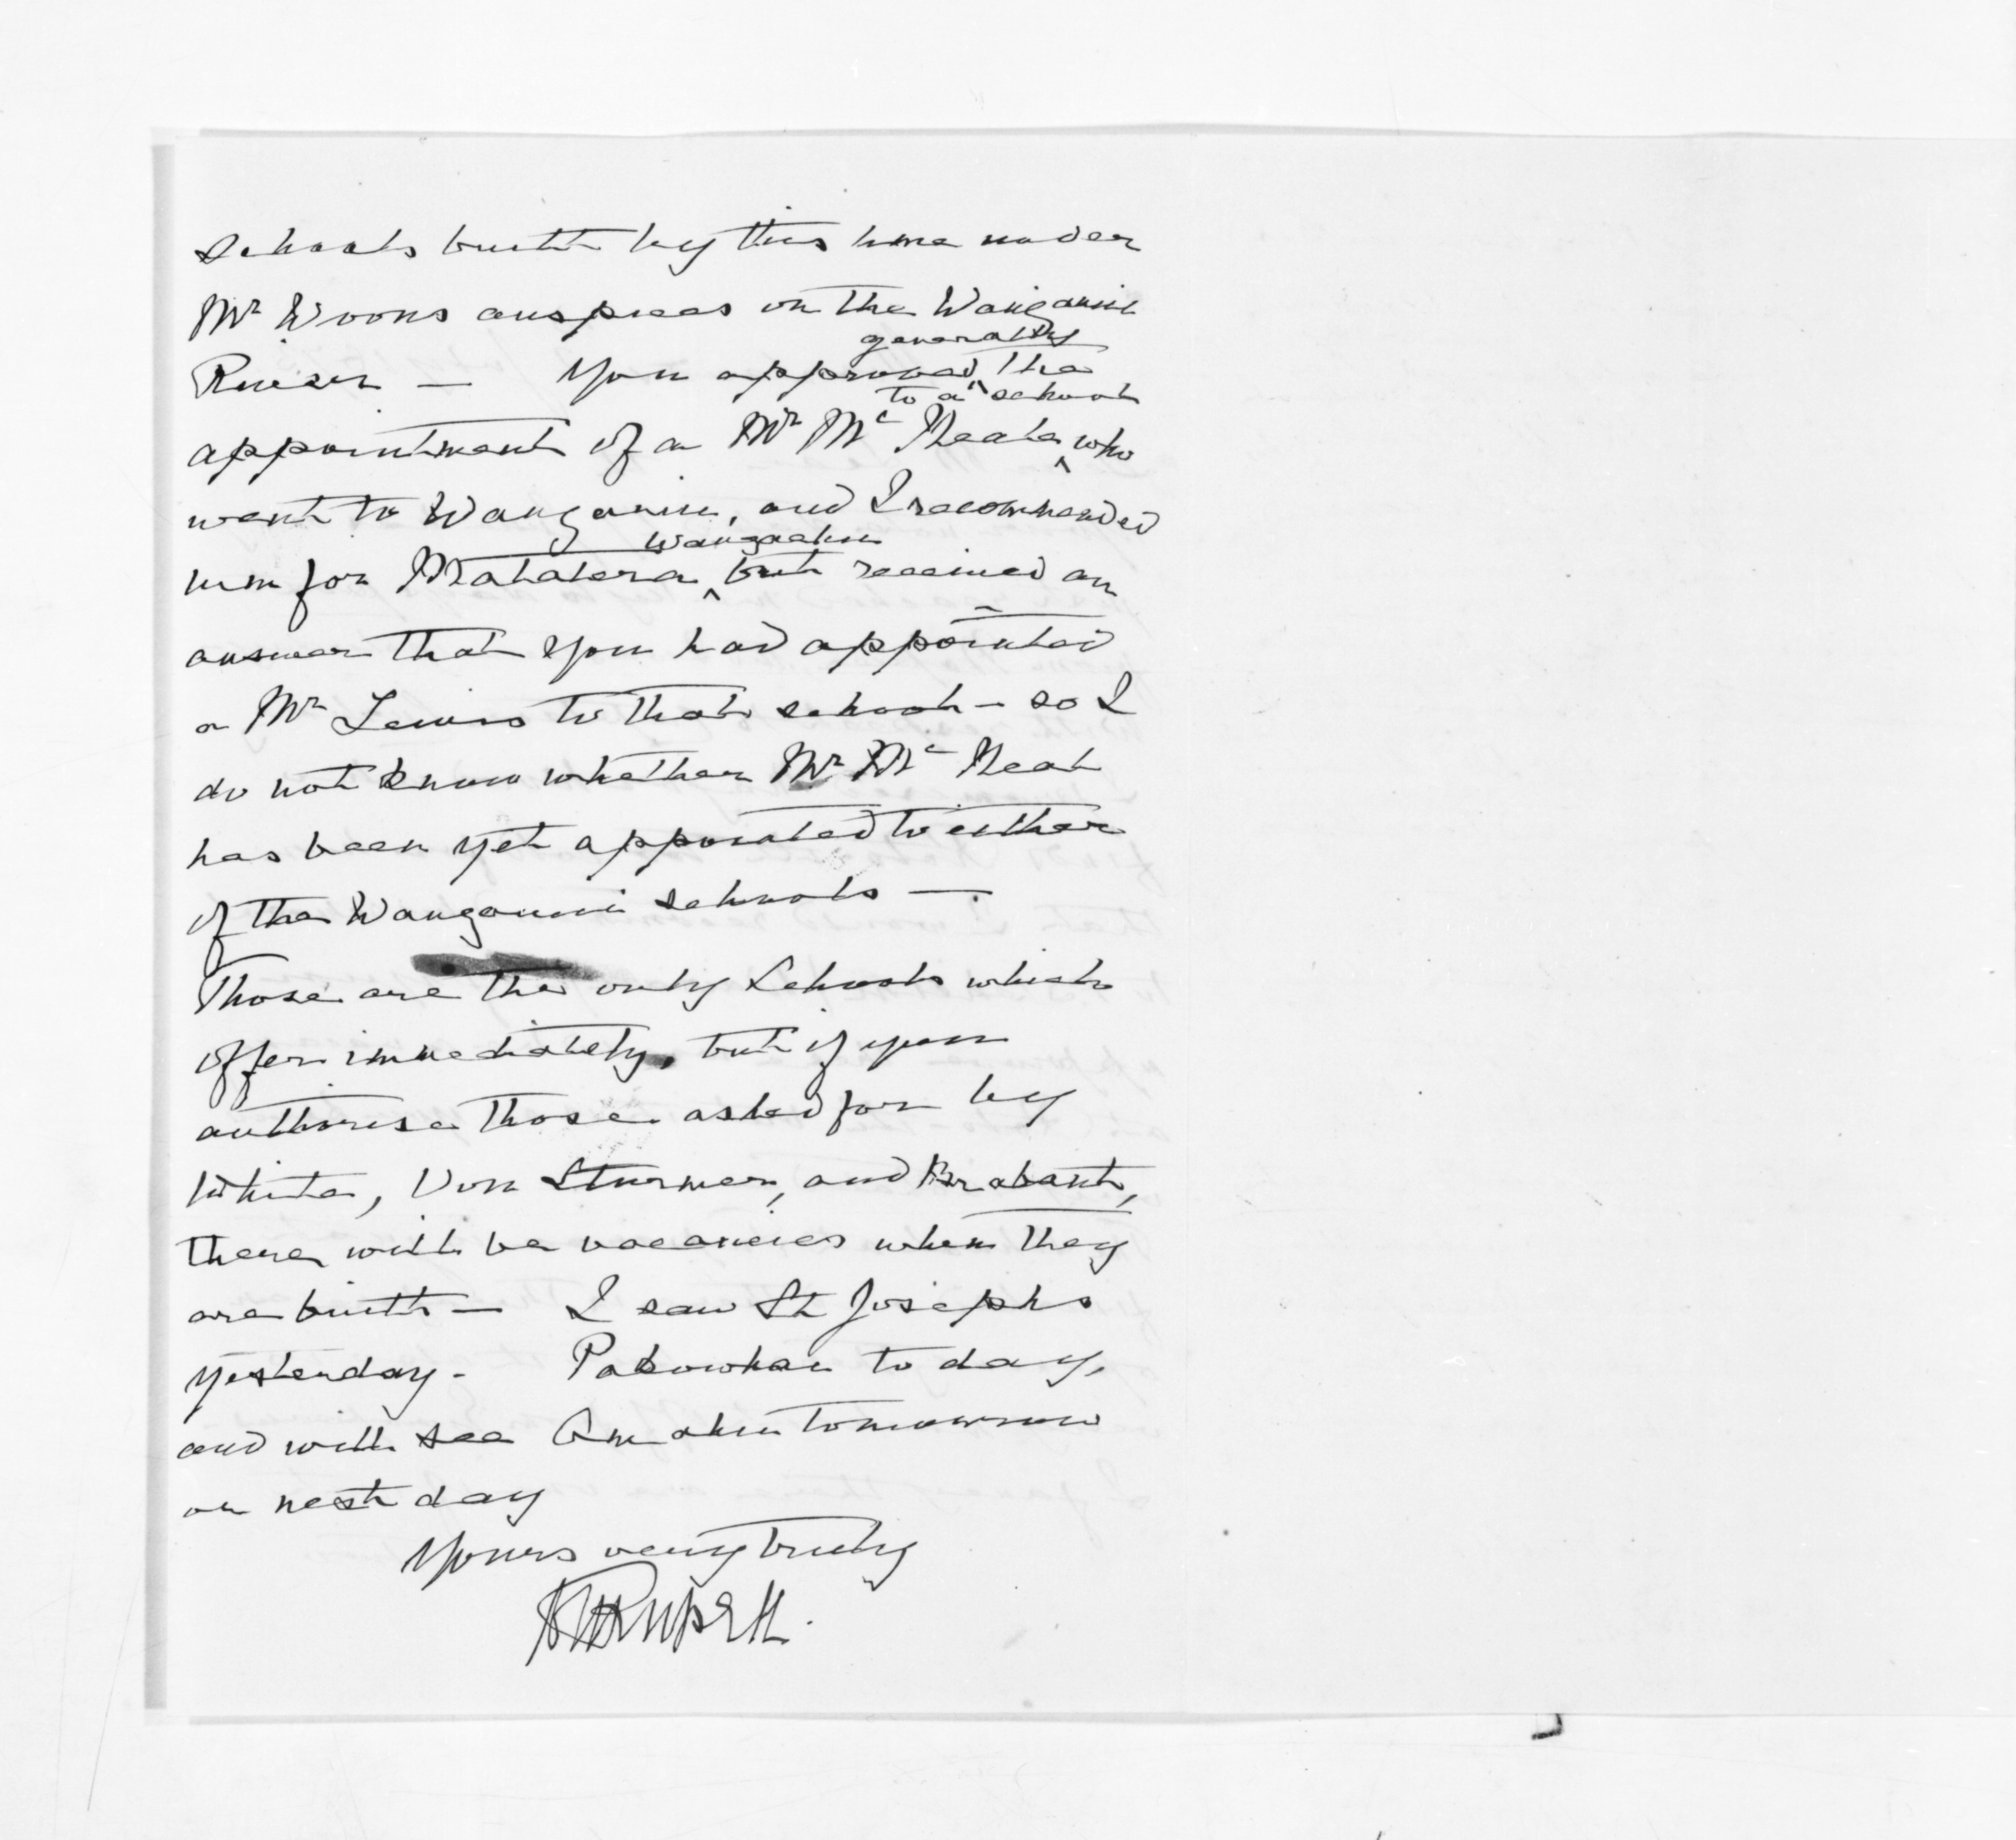 schools built by this time under
Mr Woons auspices on the Wanganui
River — You approved generally the
appointment of a Mr Mc Neale to a school who
went to Wanganui, and I recommended
him for Matatera, Wangaehu but received an
answer that you had appointed
a Mr Lewis to that school – so I
do not know whether Mr Mc Neal
has been yet appointed to either
of the Wanganui schools —
Those are the only Schools which
offer immediately, but if you
authorise those asked for by
White, Von Sturmer, and Brabant,
there will be vacancies when they
are built — I saw St Josephs
yesterday - Pakowhai to day,
and will see Omahu tomorrow
or next day
Yours very truly
HRRussell.